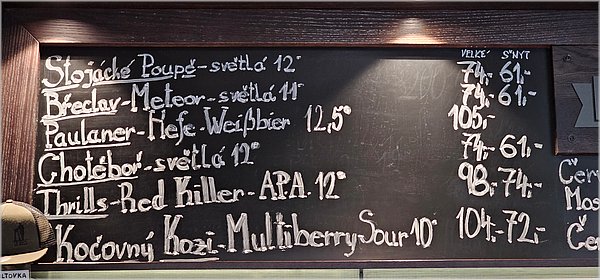 VELKÉ ŠNYT
Stojácké Poupě - světlá 12° 74,- 61,-
Břeclav - Meteor - světlá 11° 74,- 61,-
Paulaner - Hefe - Weißbier 12,5° 105,-
Chotěboř - světlá 12° 74,- 61,-
Thrills - Red Killer - APA 12° 98,- 74,-
Kočovný Kozi - Multiberry Sour 10° 104,- 72,-
Čer
Mos
Čer
LTOVKA